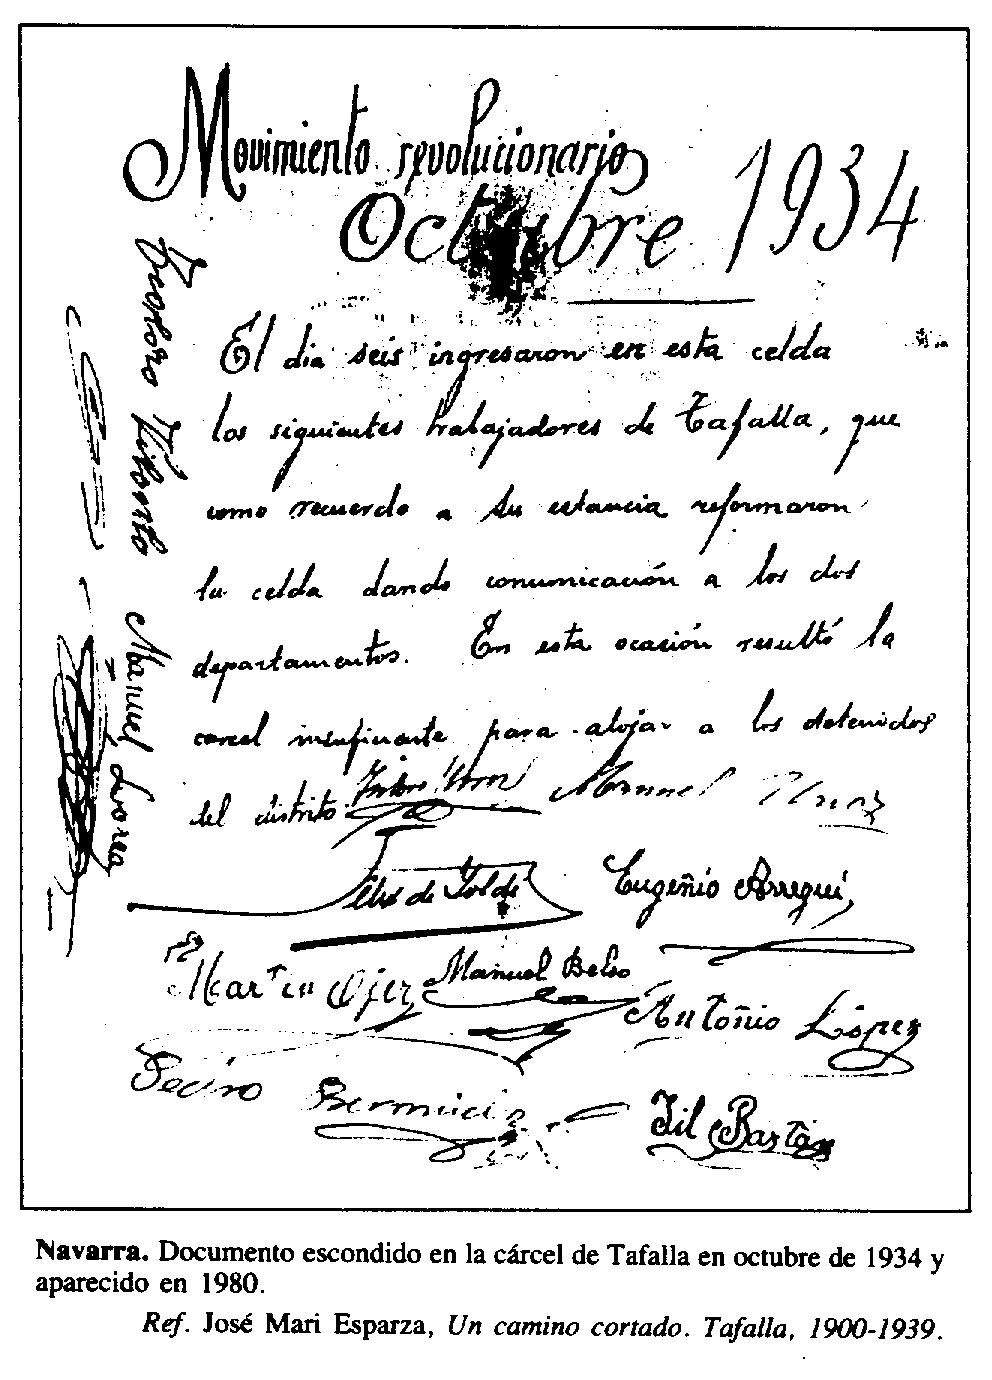 Movimiento revolucionario
Octubre 1934
El dia seis ingresaron en esta celda
los siguientes trabajadores de Tafalla, que
como recuerdo a su estancia reformaron
la celda dando comunicación a los dos
departamentos. En esta ocasión resultó la
carcel insuficiente para alojar a los detenidos
del distrito
Manuel
Felix de
Eugeñio Arregui
Martin Ojer
Manuel Belso
Antoñio López
Pedro Bermudez
Jil Bastán
Manuel Lorea
Navarra. Documento escondido en la cárcel de Tafalla en octubre de 1934 y
aparecido en 1980.
Ref. José Mari Esparza, Un camino cortado. Tafalla, 1900-1939.